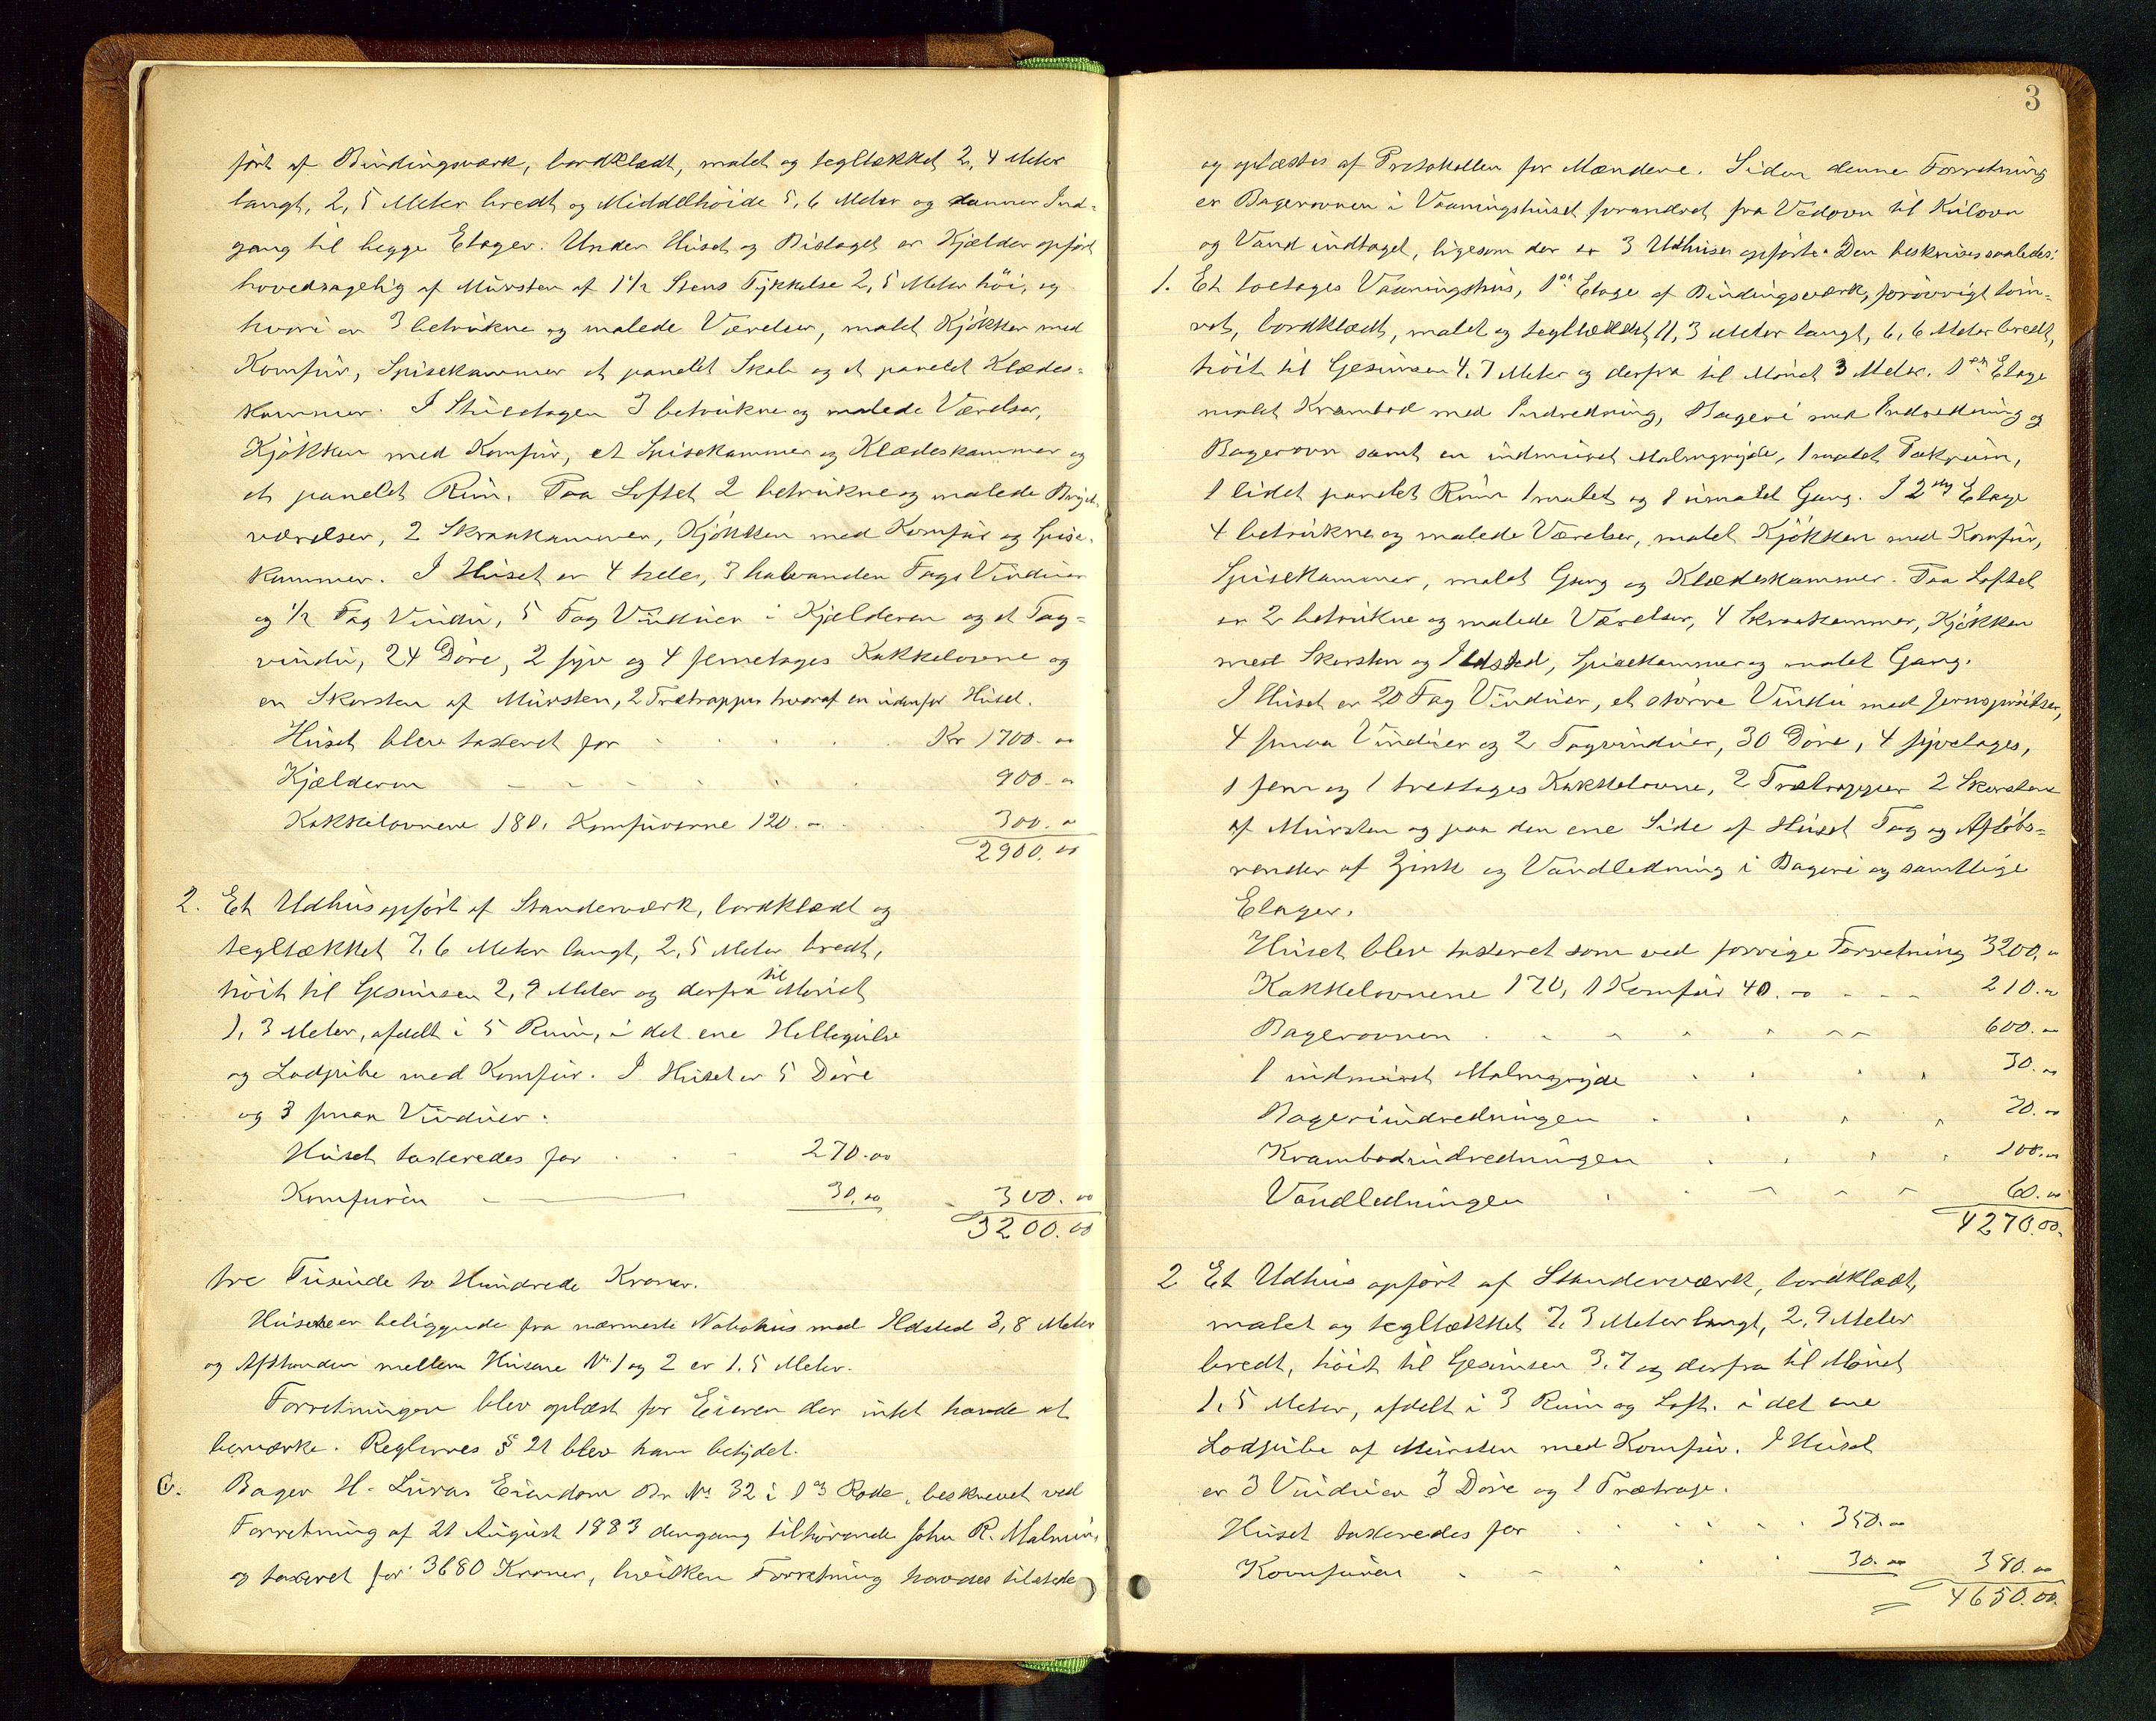 ført af Bindingsværk, bordklædt, malet og tegltækket 2,4 Meter
langt, 2,5 Meter bredt og Middelhøide 5,6 Meter og danner Ind-
gang til begge Etager. Under Huset og Bislaget er Kjælder opført
hovedsagelig af Mursten af 1½ Stens Tykkelse 2,5 Meter høi, og
hvori er 3 betrukne og malede Værelser, malet Kjøkken med
Komfur, Spisekammer et panelet Skab og et panelet Klædes-
kammer. I Stueetagen 3 betrukne og malede Værelser,
Kjøkken med Komfur, et Spisekammer og Klædeskammer og
et panelet Rum. Paa Loftet 2 betrukne og malede
værelser, 2 Skraakammer, Kjøkken med Komfur og Spise-
kammer. I Huset er 4 hele, 3 halvanden Fags Vinduer
og ½ Fag Vindu, 5 Fag Vinduer i Kjælderen og et Tag-
vindu, 24 Døre, 2 syv og 4 femetages Kakkelovne og
en Skorsten af Mursten, 2 Trætrapper hvoraf en udenfor Huset.
Huset blev taxeret for Kr 1700.00
Kjælderen 900.00
Kakkelovnene 180. Komfurerne 120.00 300.00
2900.00
2. Et Udhus opført af Standerværk, bordklædt og
tegltækket 7,6 Meter langt, 2,5 Meter bredt,
høit til Gesimsen 2,9 Meter og derfra til Mønet
1,3 Meter, afdelt i 5 Rum, i det ene Hellegulv
og Lodpibe med Komfur. I Huset er 5 Døre
og 3 smaa Vinduer.
Huset taxeredes for 270.00
Komfuren 30.00 300.00
3200.00
tre Tusinde to Hundrede Kroner.
Husene er beliggende fra nærmeste Nabohus med Ildsted 3,8 Meter
og Afstanden mellem Husene No 1 og 2 er 1.5 Meter.
Forretningen blev oplæst for Eieren der intet havde at
bemærke. Reglernes § 21 blev ham betydet.
Bager H. Luras Eiendom Br No 32 i 13 Rode, beskrevet ved
Forretning af 21 August 1883 dengang tilhørende John R. Malmin,
og taxeret for 3680 Kroner, hvilken Forretning havdes tilstede
3
og oplæstes af Protokollen for Mændene. Siden denne Forretning
er Bagerovnen i Vaaningshuset forandret fra Vedovn til Kulovn
og Vand indtaget, ligesom der er 3 Udhuse opførte. Den beskrives saaledes:
1. Et toetages Vaaningshus, 1ste Etage af Bindingsværk, forøvrigt tøm-
ret, bordklædt, malet og tegltækket, 11,3 Meter langt, 6,6 Meter bredt,
høit til Gesimsen 4,7 Meter og derfra til Mønet 3 Meter. I 1ste Etage
malet Krambod med Indredning, Bageri med Indredning og
Bagerovn samt en indmuret Malmgryde, 1 malet Pakrum,
1 lidet panelet Rum 1 malet og 1 umalet Gang. I 2den Etage
4 betrukne og malede Værelser, malet Kjøkken med Komfur,
Spisekammer, malet Gang og Klædeskammer. Paa Loftet
er 2 betrukne og malede Værelser, 4 Skraakammer, Kjøkken
med Skorsten og Ildsted, Spisekammer og malet Gang.
I Huset er 20 Fag Vinduer, et større Vindu med Jernsprodser,
4 smaa Vinduer og 2 Tagvinduer, 30 Døre, 4 syvetages,
1 fem og 1 treetages Kakkelovne, 2 Trætrapper 2 Skorstene
af Mursten og paa den ene Side af Huset Tag og Afløbs-
render af Zink og Vandledning i Bageri og samtlige
Etager.
Huset blev taxeret som ved forrige Forretning 3200.00
Kakkelovnene 170, 1 Komfur 40.00 210.00
Bagerovnen 600.00
1 indmuret Malmgryde 30.00
Bageriindredningen 70.00
Krambodindredningen 100.00
Vandledningen 60.00
4270.00
2 Et Udhus opført af Standerværk, bordklædt,
malet og tegltækket 7,3 Meter langt, 2,9 Meter
bredt, høit til Gesimsen 3.7 og derfra til Mønet
1,5 Meter, afdelt i 3 Rum og Loft. i det ene
Lodpibe af Mursten med Komfur. I Huset
er 3 Vinduer 3 Døre og 1 Trætrape.
Huset taxeredes for 350.00
Komfuren 30.00 380.00
4650.00